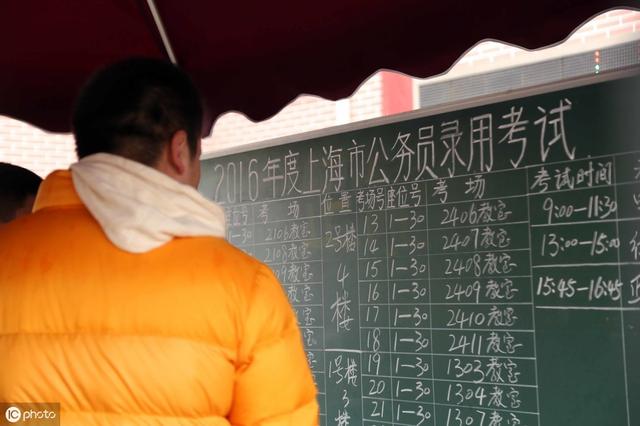 2016年度上海市公务员录用考试
考场 位置 考场号 座位号 考场 考试时间
2106教室 13 1-30 2406教室 9:00-11:30
2108教室 2号楼 14 1-30 2407教室 13:00-15:00
09教室 4楼 15 1-30 2408教室 15:45-16:45
教室 16 1-30 2409教室
17 1-30 2410教室
18 1-30 2411教室
1号楼 19 1-30 1303教室
3 20 1-30 1304教室
21 1-30 1307教室
ic photo